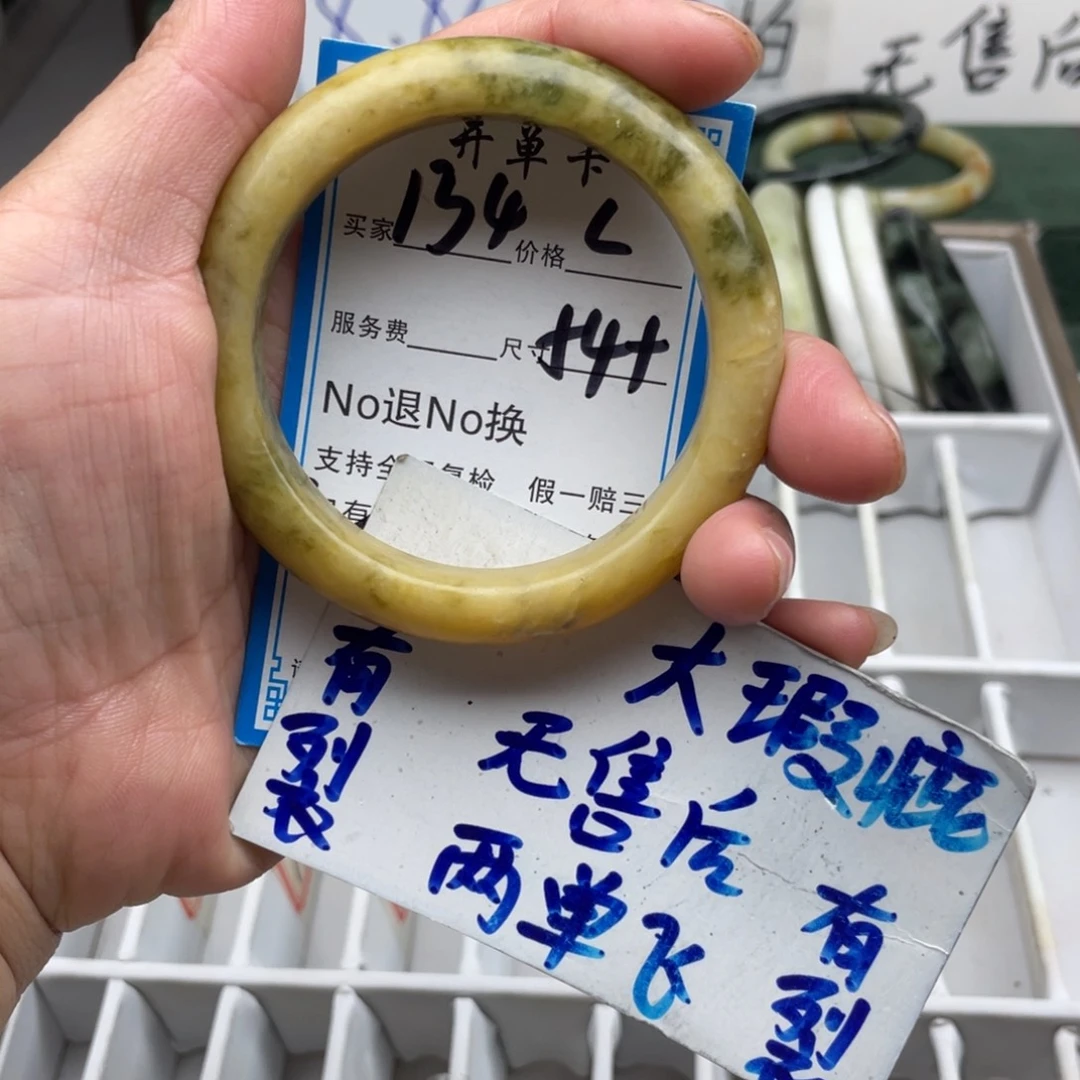 无售后
弃单卡
买家134 价格L
服务费 尺寸
No退No换
支持全 复检 假一赔三
有
有裂
大瑕疵
无售后
两单飞
有裂